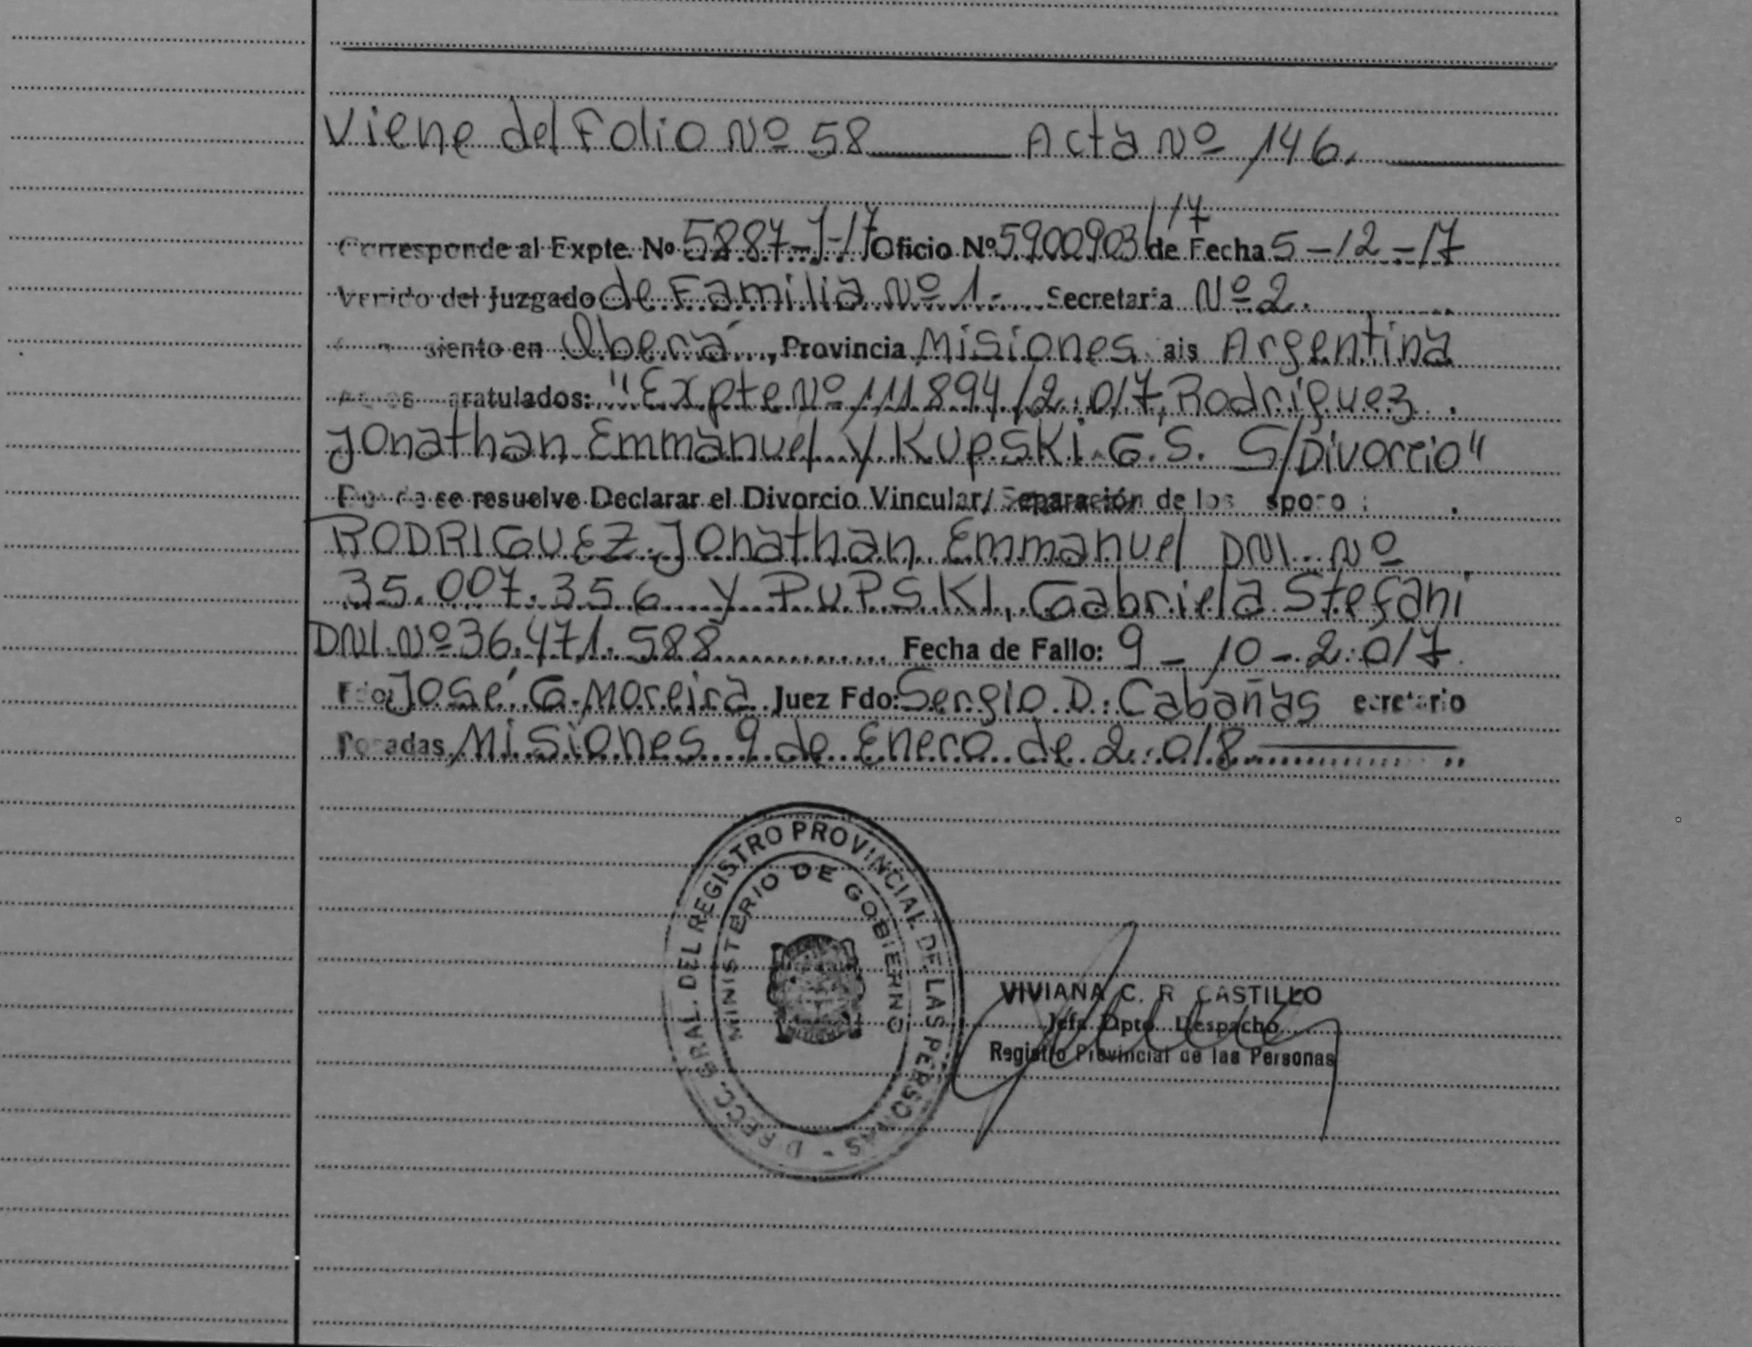 Viene del Folio Nº 58 Acta Nº 146.
Corresponde al Expte. Nº 5887-J-17 Oficio Nº 5900903/17 de Fecha 5-12-17
Venido del Juzgado de Familia Nº 1.- Secretaria Nº 2.
siento en Oberá, Provincia Misiones ais Argentina
aratulados: "Expte Nº 111894/2.017, Rodríguez
Jonathan Emmanuel y Kupski G.S. S/Divorcio"
se resuelve Declarar el Divorcio Vincular/ Separación de los sposo :
RODRIGUEZ Jonathan Emmanuel DNI. Nº
35.007.356 y PUPSKI, Gabriela Stefani
DNI. Nº 36.471.588 Fecha de Fallo: 9-10-2.017.
Fdo: José G. Moreira Juez Fdo: Sergio D. Cabañas ecretario
Posadas, Misiones 9 de Enero de 2.018
DIRECC. GRAL. DEL REGISTRO PROVINCIAL DE LAS PERSONAS -
MINISTERIO DE GOBIERNO
VIVIANA C. R CASTILLO
Jefa Dpto Despacho
Registro Provincial de las Personas